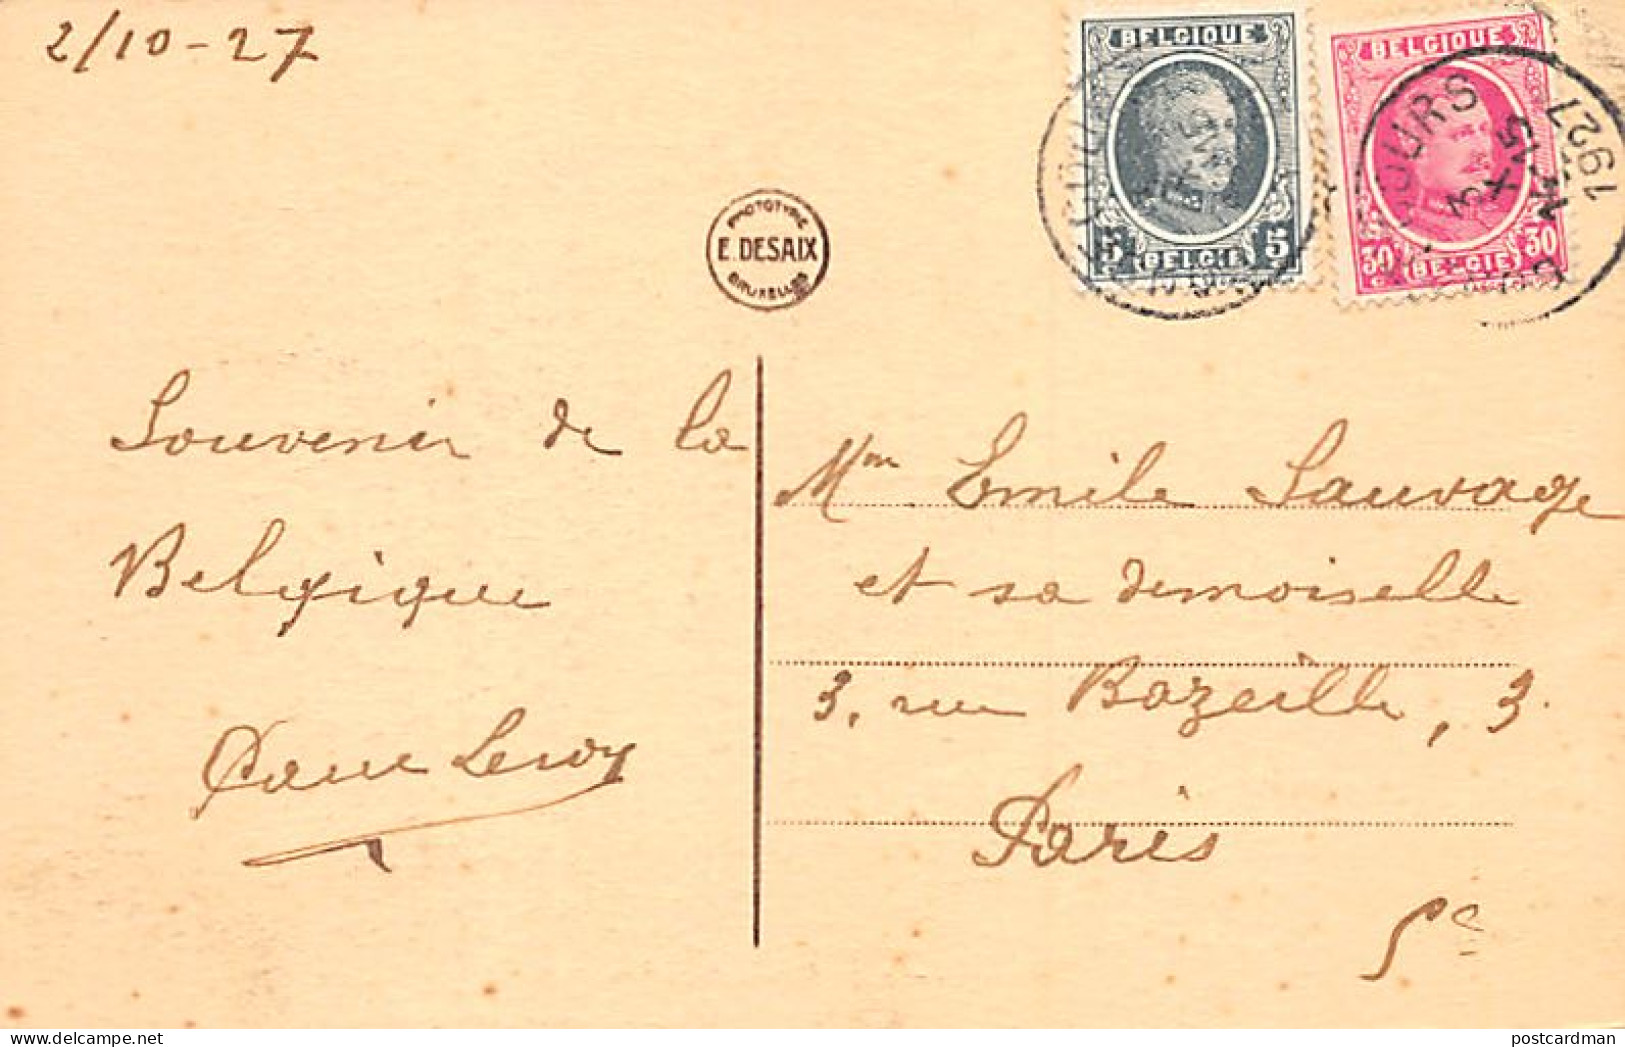 2/10-27
BELGIQUE
5 BELGIE 5
BELGIQUE
30 BELGIE 30
1927
PHOTOTYPIE
E. DESAIX
BRUXELLES
Souvenir de la
Belgique
Leroy
Mme Emile Sauvage
et sa demoiselle
3, rue Bazeille, 3.
Paris
5e
postcardman